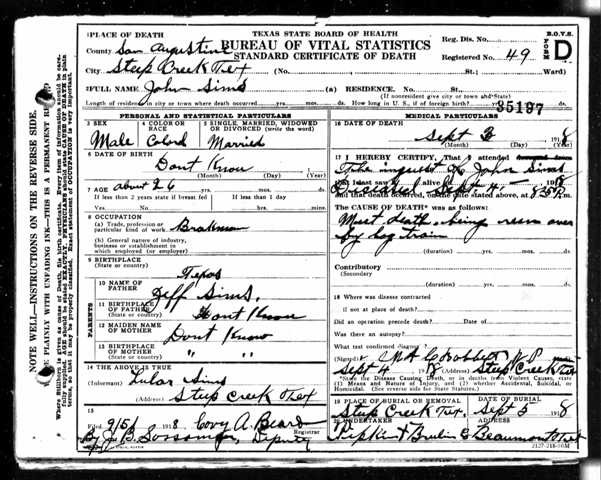 TEXAS STATE BOARD OF HEALTH
BUREAU OF VITAL STATISTICS
STANDARD CERTIFICATE OF DEATH
B.O.V.S.
FORM D
Reg. Dis. No.
Registered No. 49
1 PLACE OF DEATH
County San Augustine
City Steep Creek Tex (No. St.; Ward)
2 FULL NAME John Sims (a) RESIDENCE. No. St.
(If nonresident give city or town and State)
Length of residence in city or town where death occurred yrs. mos. ds. How long in U. S., if of foreign birth? yrs. mos. ds.
35197
PERSONAL AND STATISTICAL PARTICULARS
3 SEX
Male
4 COLOR OR RACE
Colord
5 SINGLE, MARRIED, WIDOWED OR DIVORCED (write the word)
Married
6 DATE OF BIRTH
Dont Know
(Month) (Day) (Year)
7 AGE about 26
If less than 2 years state if breast fed
If less than 1 day
8 OCCUPATION
(a) Trade, profession or particular kind of work
Brakman
(b) General nature of industry, business or establishment in which employed (or employer)
9 BIRTHPLACE
(State or country)
Texas
PARENTS
10 NAME OF FATHER
Jeff Sims
11 BIRTHPLACE OF FATHER
(State or country)
Dont Know
12 MAIDEN NAME OF MOTHER
Dont Know
13 BIRTHPLACE OF MOTHER
(State or country)
" "
14 THE ABOVE IS TRUE
(Informant) Lular Sims
(Address) Steep Creek Tex
15
Filed 9/5/ 1918 Covy A. Beard
Registrar
By J. B. Sossamon, Deputy
MEDICAL PARTICULARS
16 DATE OF DEATH
Sept
1918
(Month) (Day) (Year)
17 I HEREBY CERTIFY, That I attended
The inquest John Sims
that I last saw h alive
and that death occurred, on the date stated above, at
The CAUSE OF DEATH was as follows:
Meet death being run over
by log train
(duration) yrs. mos. ds.
Contributory
(Secondary)
(duration) yrs. mos. ds.
18 Where was disease contracted
if not at place of death?
Did an operation precede death? Date of
Was there an autopsy?
What test confirmed diagnosis?
(Signed)
Sept 4 1918 (Address) Steep Creek Tex
State the Disease Causing Death, or in deaths from Violent Causes, state (1) Means and Nature of Injury, and (2) whether Accidental, Suicidal, or Homicidal. (See reverse side for State Statutes.)
19 PLACE OF BURIAL OR REMOVAL
Steep Creek Tex.
DATE OF BURIAL
Sept 5 1918
20 UNDERTAKER
Pipkin & Brulin
ADDRESS
Beaumont Tex
2127-218-50M
NOTE WELL—INSTRUCTIONS ON THE REVERSE SIDE.
PLAINLY WITH UNFADING INK—THIS IS A PERMANENT